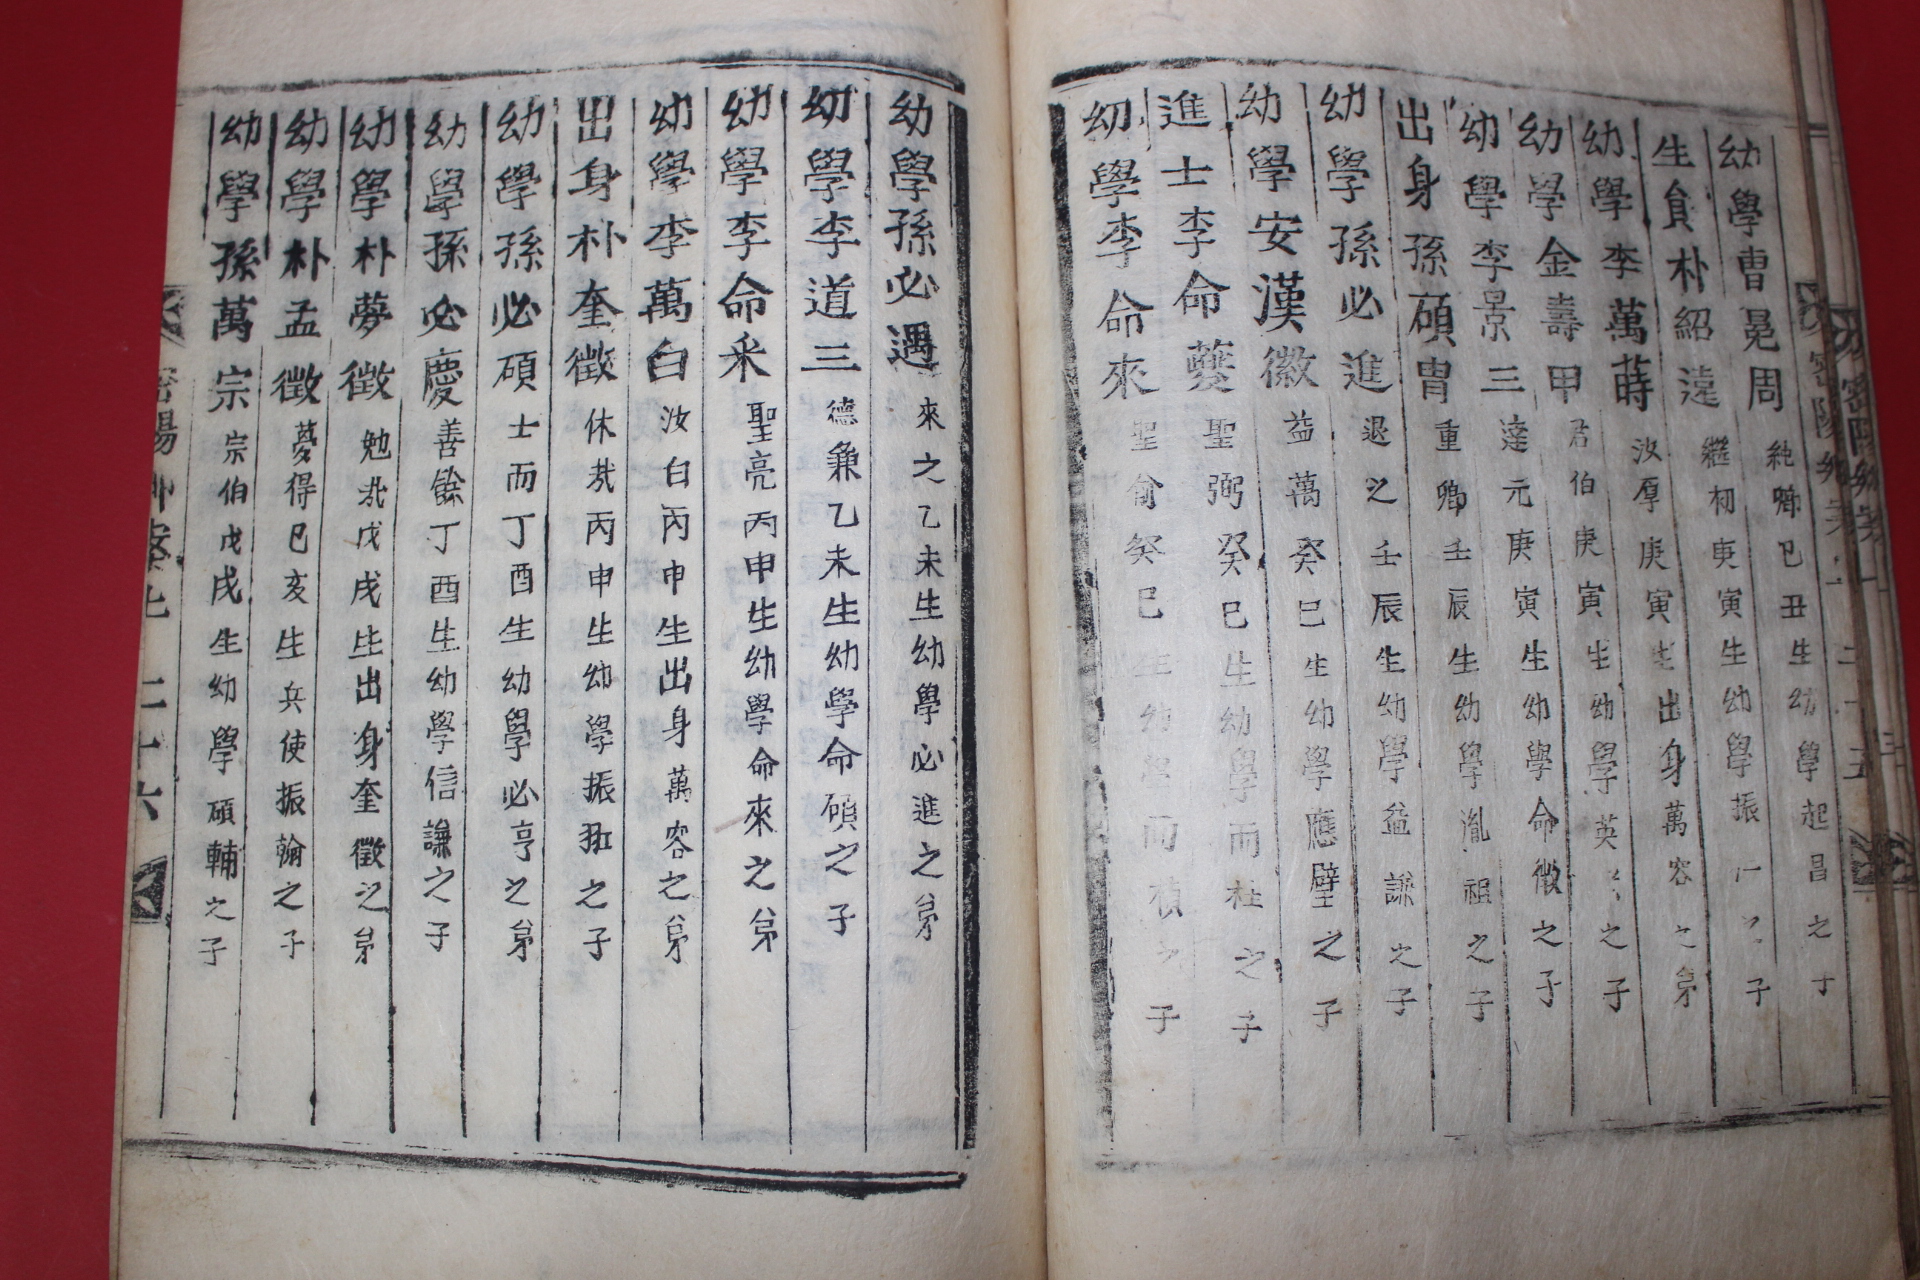 幼學曺冕周 純卿己丑生幼學起昌之子
生員朴紹遠 繼初庚寅生幼學振之子
幼學李萬蒔 汝厚庚寅生出身萬容之弟
幼學金壽甲 君伯庚寅生幼學英之子
幼學李景三 達元庚寅生幼學命徵之子
出身孫碩冑 重卿壬辰生幼學胤祖之子
幼學孫必進 退之壬辰生幼學益謙之子
幼學安漢徽 益萬癸巳生幼學應璧之子
進士李命夔 聖弼癸巳生幼學而柱之子
幼學李命來 聖俞癸巳生幼學而楨之子
幼學孫必遇 來之乙未生幼學必進之弟
幼學李道三 德兼乙未生幼學命碩之子
幼學李命釆 聖亮丙申生幼學命來之弟
幼學李萬白 汝白丙申生出身萬容之弟
出身朴奎徵 休哉丙申生幼學振羽之子
幼學孫必碩 士而丁酉生幼學必亨之弟
幼學孫必慶 善餘丁酉生幼學信謙之子
幼學朴夢徵 勉哉戊戌生出身奎徵之弟
幼學朴孟徵 夢得己亥生兵使振翰之子
幼學孫萬宗 宗伯戊戌生幼學碩輔之子
密陽鄕案上 二十六